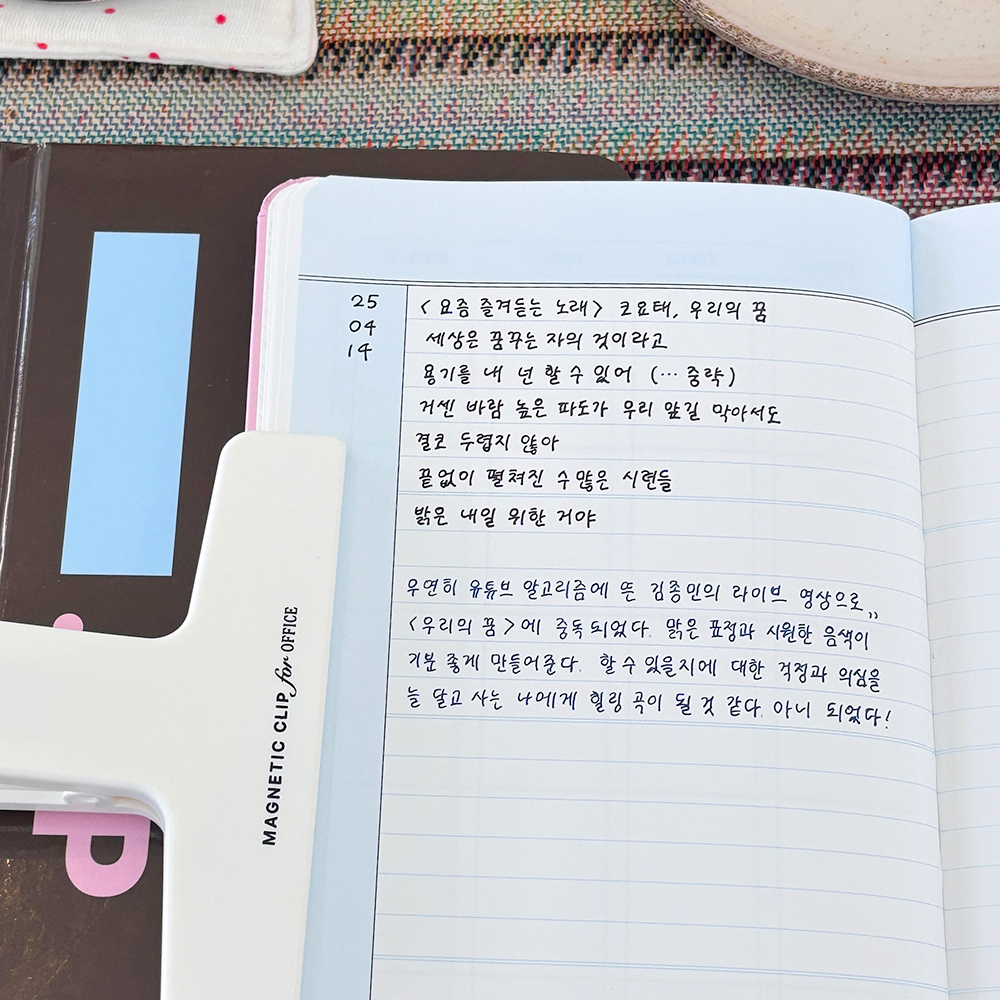 25
04
14
<요즘 즐겨듣는 노래> 코요태, 우리의 꿈
세상은 꿈꾸는 자의 것이라고
용기를 내 넌 할 수 있어 (… 중략)
거센 바람 높은 파도가 우리 앞길 막아서도
결코 두렵지 않아
끝없이 펼쳐진 수많은 시련들
밝은 내일 위한 거야
우연히 유튜브 알고리즘에 뜬 김종민의 라이브 영상으로,,
<우리의 꿈>에 중독되었다. 맑은 표정과 시원한 음색이
기분 좋게 만들어준다. 할 수 있을지에 대한 걱정과 의심을
늘 달고 사는 나에게 힐링 곡이 될 것 같다. 아니 되었다!
MAGNETIC CLIP for OFFICE
P